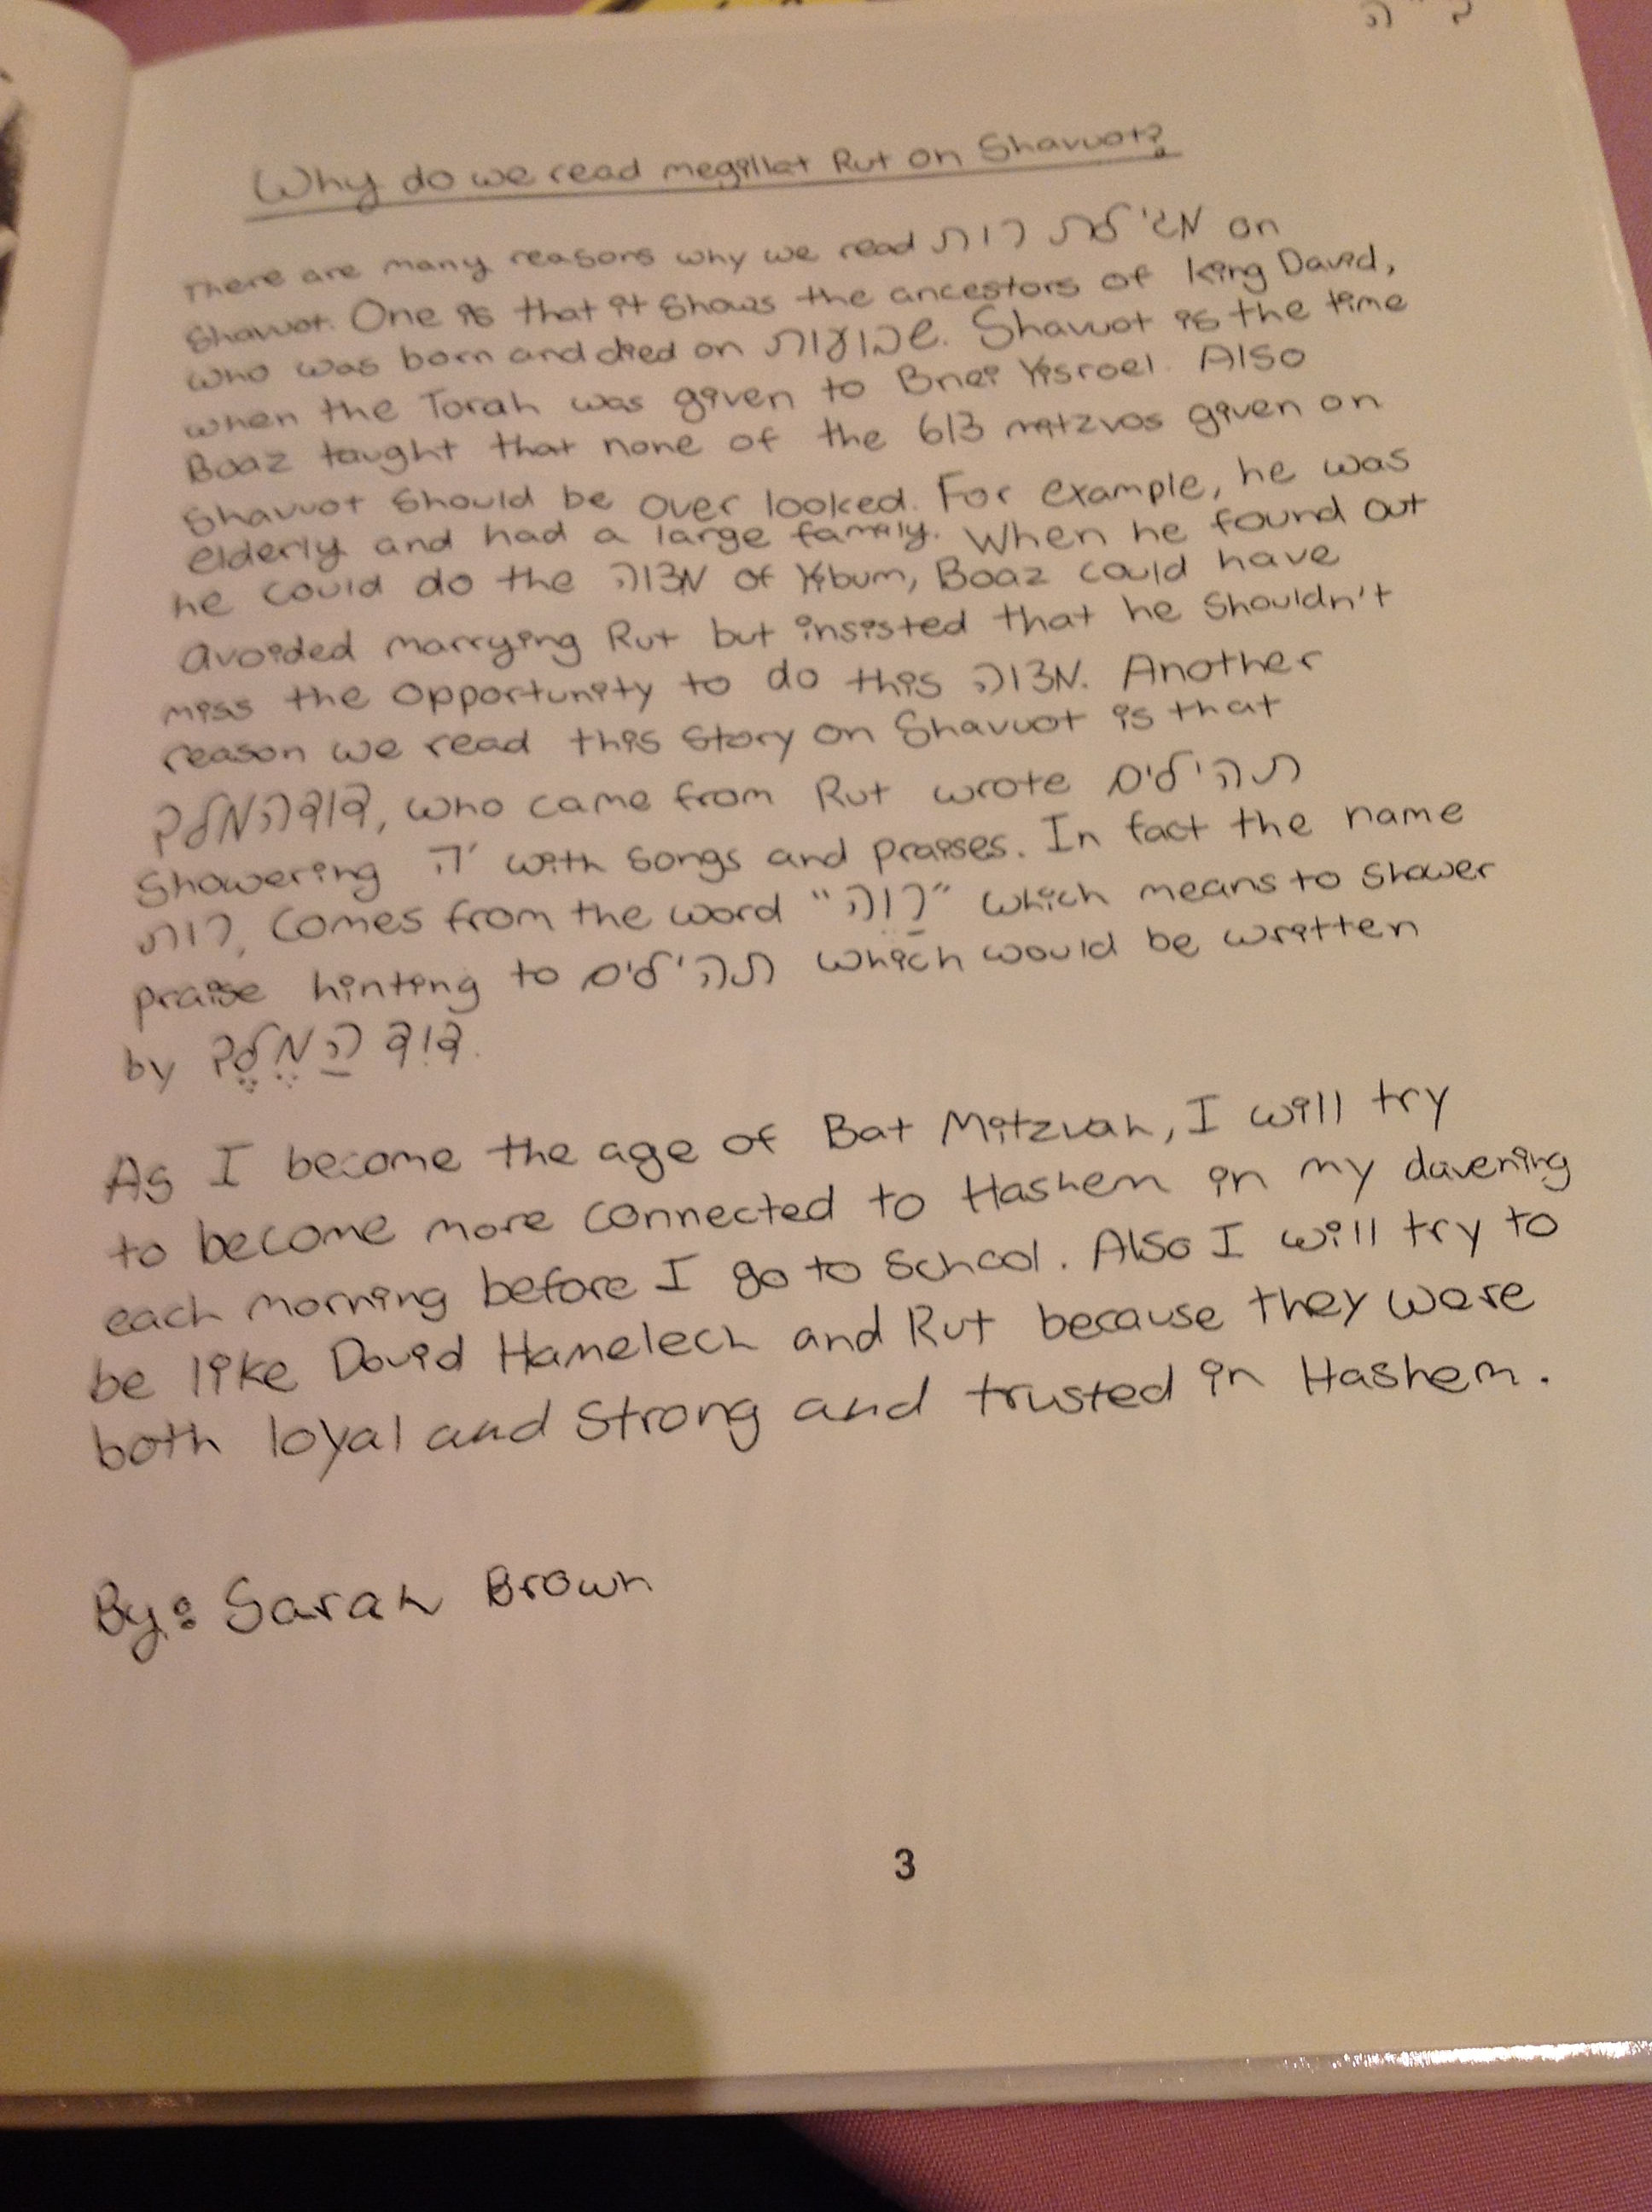 ב״ה
Why do we read megillat Rut on Shavuot?
There are many reasons why we read מגילת רות on
Shavuot. One is that it shows the ancestors of King David,
who was born and died on שבועות. Shavuot is the time
when the Torah was given to Bnei Yisroel. Also
Boaz taught that none of the 613 mitzvos given on
Shavuot should be over looked. For example, he was
elderly and had a large family. When he found out
he could do the מצוה of Yibum, Boaz could have
avoided marrying Rut but insisted that he shouldn't
miss the opportunity to do this מצוה. Another
reason we read this story on Shavuot is that
דוד המלך, who came from Rut wrote תהילים
showering ה׳ with songs and praises. In fact the name
רות, comes from the word "רִוַה" which means to shower
praise hinting to תהילים which would be written
by דוִד הַמֵלֶך.
As I become the age of Bat Mitzvah, I will try
to become more connected to Hashem in my davening
each morning before I go to school. Also I will try to
be like Dovid Hamelech and Rut because they were
both loyal and strong and trusted in Hashem.
By: Sarah Brown
3